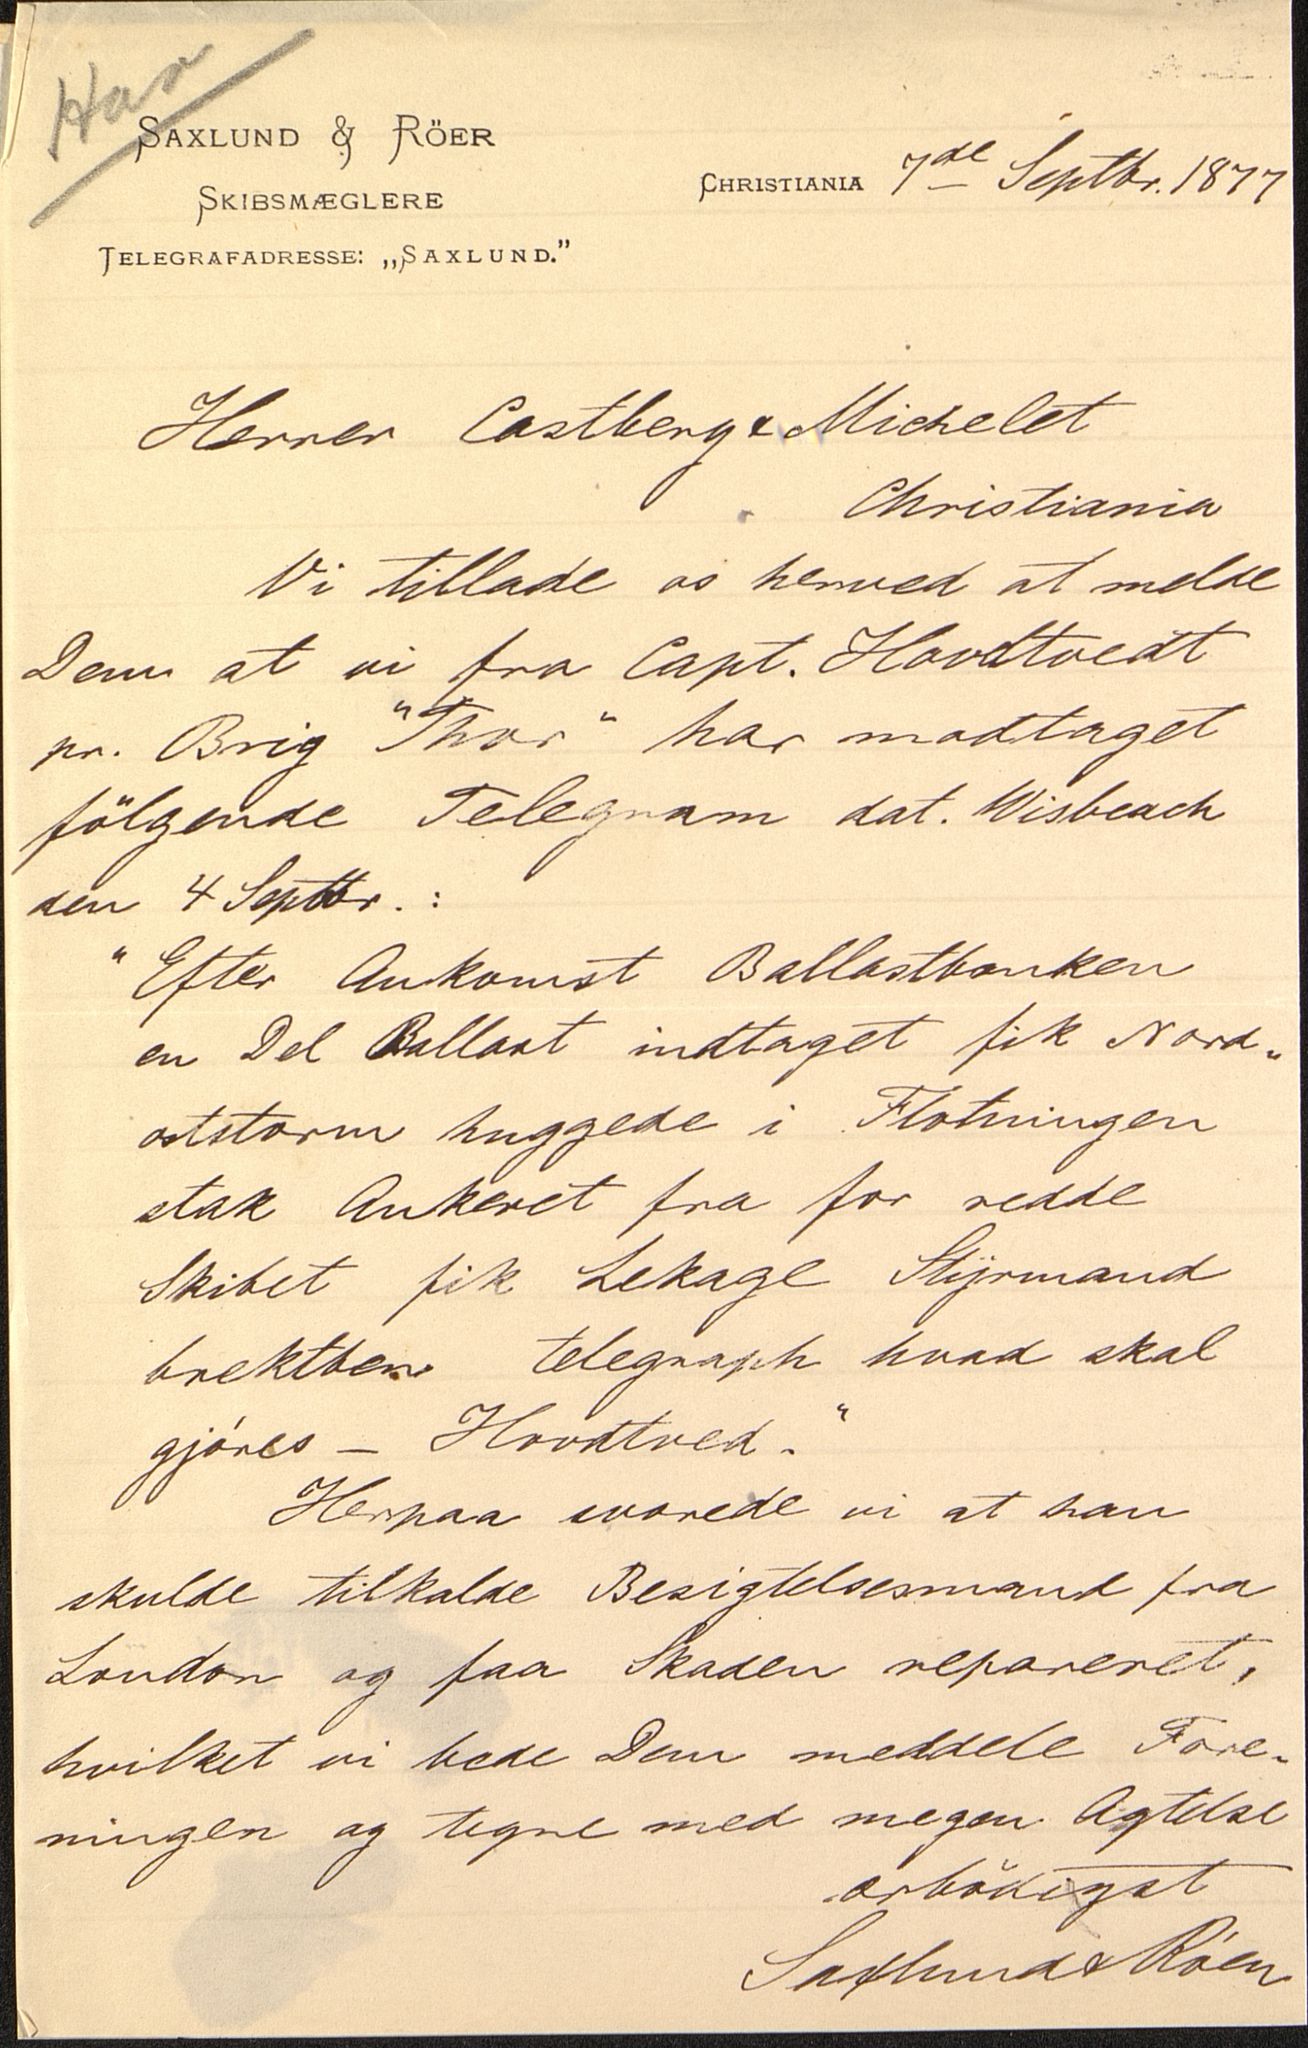 Har
SAXLUND & RÖER
SKIBSMÆGLERE
TELEGRAFADRESSE: „SAXLUND.”
CHRISTIANIA 7de Septbr. 1877
Herrer Castberg & Michelet
Christiania
Vi tillade os herved at melde
Dem at vi fra Capt. Hovdtvedt
pr. Brig "Thor" har modtaget
fölgende Telegram dat. Wisbeach
den 4 Septbr. :
"Efter Ankomst Ballastbanken
en Del Ballast indtaget fik Nord-
oststorm huggede i Flotningen
stak Ankeret fra for redde
Skibet fik Lekage Styrmand
brektben telegraph hvad skal
gjöres – Hovdtved."
Herpaa svarede vi at han
skulde tilkalde Besigtelsesmand fra
London og faa Skaden repareret,
hvilket vi bede Dem meddele Fore-
ningen og tegne med megen Agtelse
ærbödigst
Saxlund & Röer